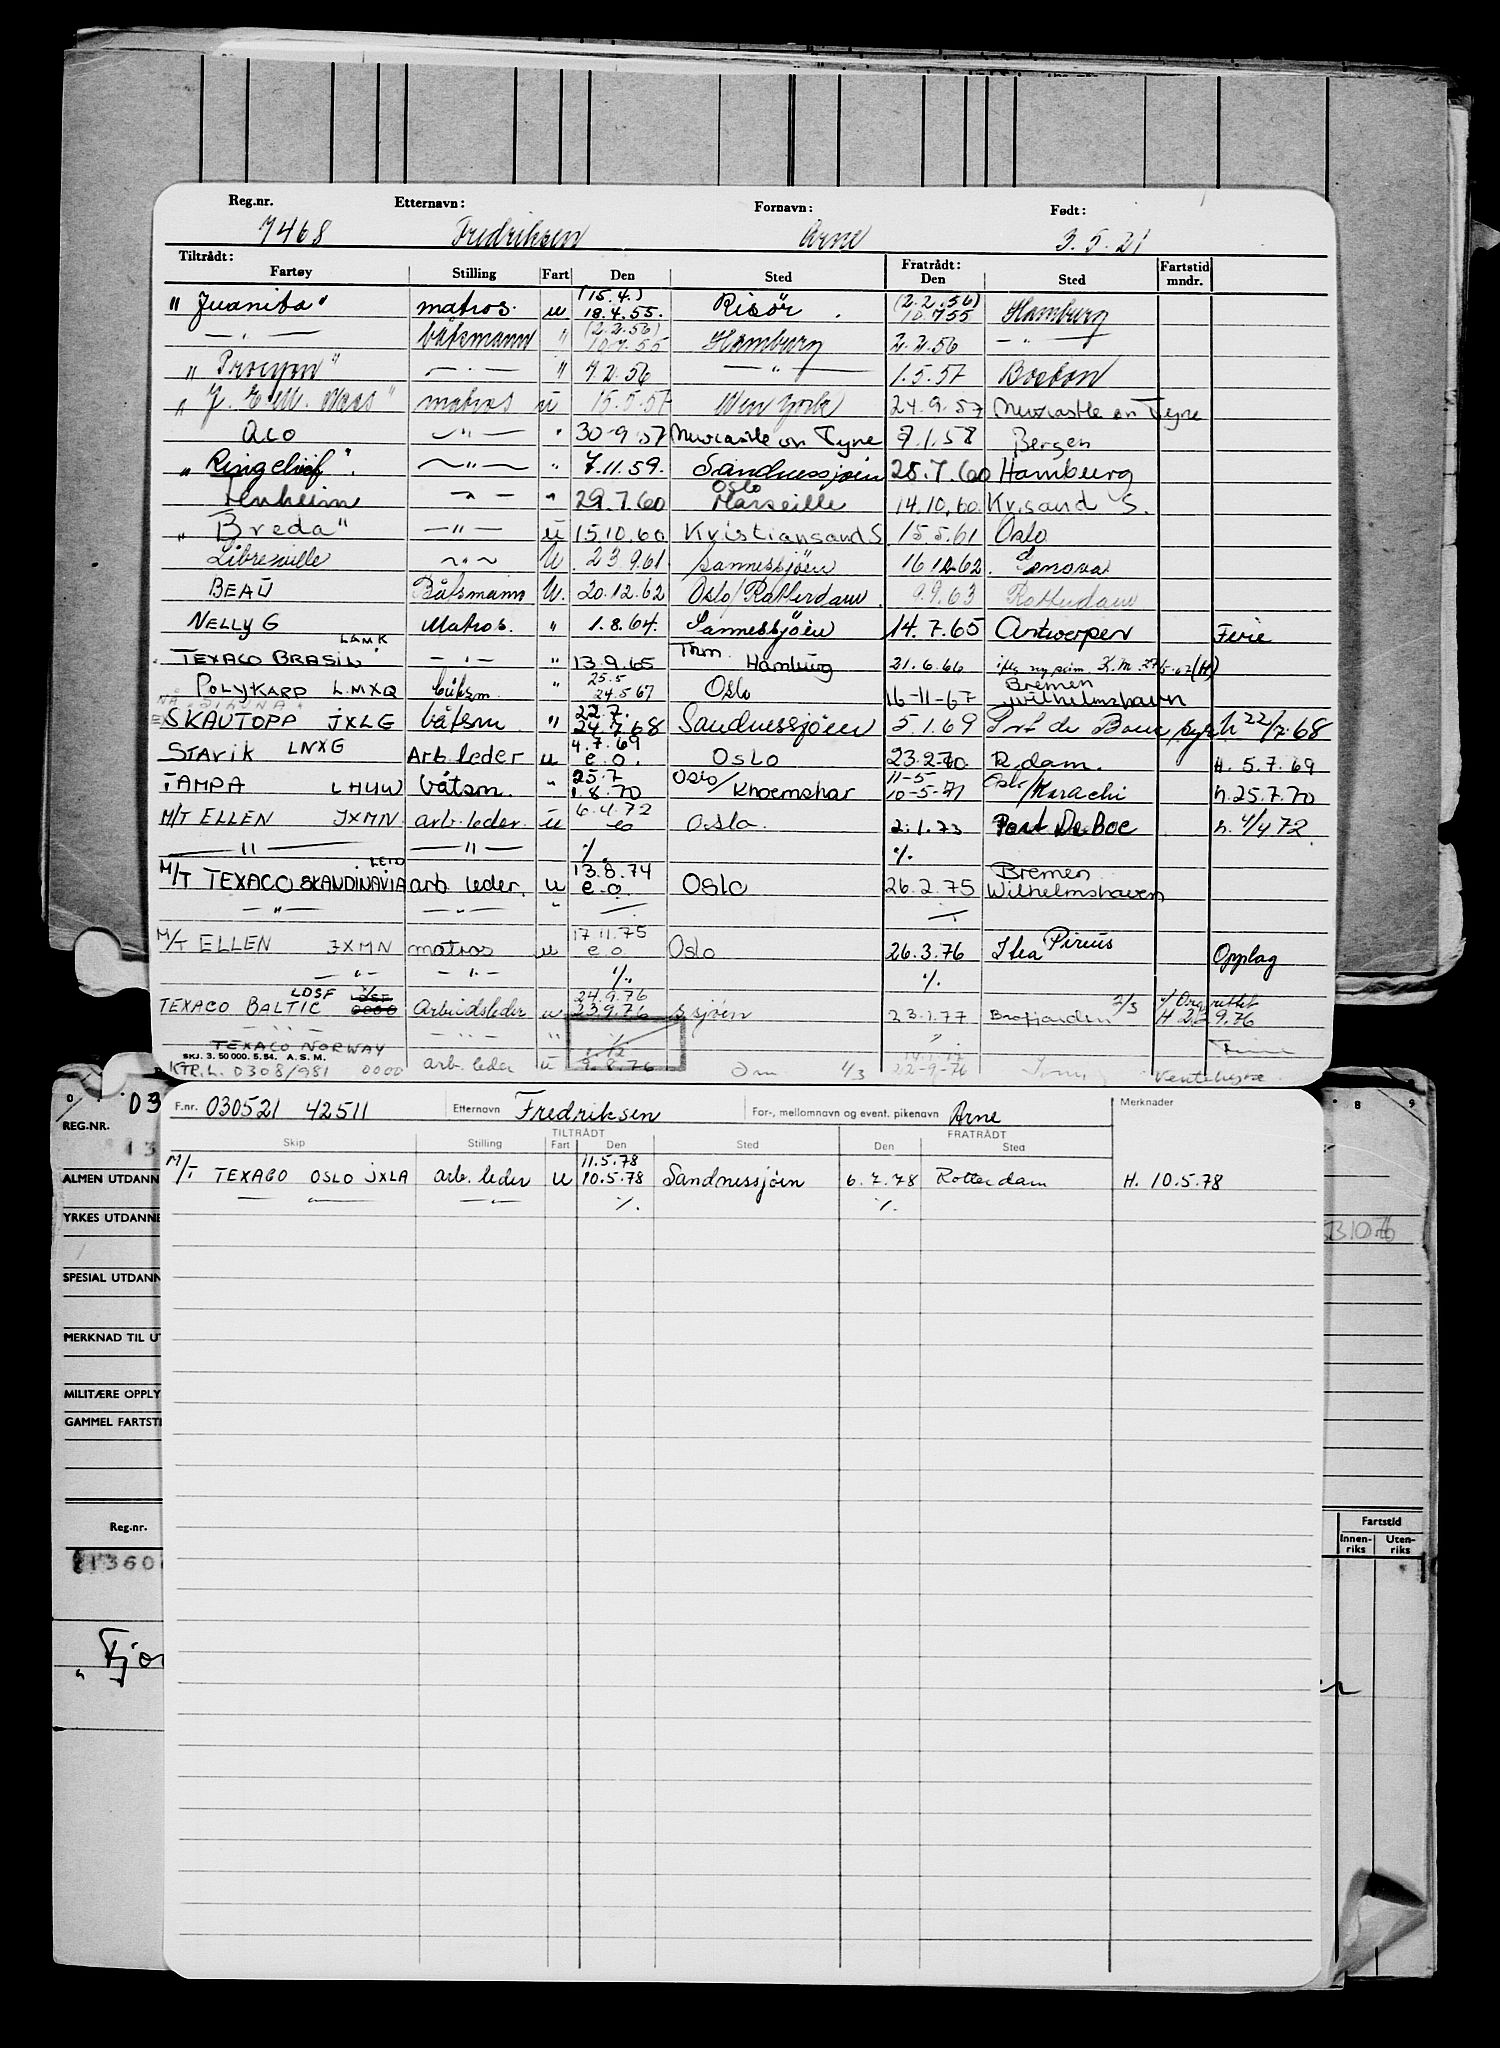 Reg.nr. Etternavn: Fornavn: Født:
7468 Fredriksen Arne 3.5.21
Tiltrådt: Fratrådt: Fartstid
Fartøy Stilling Fart Den Sted Den Sted mndr.
(15.4.) (2.2.56)
"Juanita" matros. u 18.4.55. Risör. 10.7.55 Hamburg
(2.2.56)
— " — båtsmann " 10.7.55 Hamburg 2.2.56 — " —
"Procyon" — " — " 7.2.56 — " — 1.5.57 Boston
"J. E. M. Naas" matros u 15.5.57 New York 24.9.57 Newcastle on Tyne
Aco — " — " 30-9-57 Newcastle on Tyne 7.1.58 Bergen
"Ringelief". — " — " 7.11.59. Sandnessjøen 25.7.60 Hamburg
Oslo
— " — " 29.7.60 Marseille 14.10.60. Kr.sand S.
"Breda" — " — u 15.10.60 Kristiansand S 15.5.61 Oslo
Libreville — " — U. 23.9.61 Sannessjöen 16.12.62. Genova
BEAU Båtsmann U. 20.12.62 Oslo/Rotterdam. 9.9.63 Rotterdam
NELLY G Matros. " 1.8.64. Sannessjöen 14.7.65 Antwerpen Ferie
LAMK
TEXACO BRASIL — " — " 13.9.65 Hamburg 21.6.66
25.5 Bremen
POLYKARP LMXQ båtsm. " 24.5.67 Oslo 16-11-67 Wilhelmshavn
22.7.
SKAUTOPP JXLG båtsm " 24.7.68 Sandnessjöen 5.1.69 Port de Bouc h 22/7.68
4.7.69
STAVIK LNXG Arb. leder u e.o. OSLO 23.2.70. R.dam. H. 5.7.69
25.7 11-5
TAMPA LHUW båtsm. " 1.8.70 Oslo/Khoemshar 10-5-71 Oslo/Karachi h. 25.7.70
6.4.72
M/T ELLEN JXMN arb. leder. u eo Oslo. 2.1.73 Port De Boc h. 4/4 72
— " — — " — ⁒ ⁒
LEID 13.8.74 Bremen
M/T TEXACO SKANDINAVIA arb. leder. u e.o. Oslo 26.2.75 Wilhelmshaven
— " — — " — " ⁒ ⁒
17.11.75
M/T ELLEN JXMN matros u e.o Oslo 26.3.76 Itea Pireus Opplag
— " — — " — ⁒ ⁒
LDSF 24.9.76 7/3
TEXACO BALTIC Arbeidsleder u 23.9.76 S.sjöen 23.1.77 Brofjorden H 22.9.76
TEXACO NORWAY
SKJ. 3. 50 000. 5. 54. A. S. M.
KTR.L. 0308/981 0000 arb. leder u 9.8.76 Om 1/3 22-9-76
F.nr. 030521 42511 Etternavn Fredriksen For-, mellomnavn og event. pikenavn Arne Merknader
TILTRÅDT FRATRÅDT
Skip Stilling Fart Den Sted Den Sted
11.5.78
M/T TEXACO OSLO JXLA arb. leder u 10.5.78 Sandnessjöen 6.7.78 Rotterdam H. 10.5.78
— " — — " — ⁒ ⁒
03
REG.NR.
ALMEN UTDANN
YRKES UTDANNE
SPESIAL UTDANN
MERKNAD TIL UT
MILITÆRE OPPLY
GAMMEL FARTSTI
Reg.nr. Fartstid
Innen-riks Uten-riks
8 9